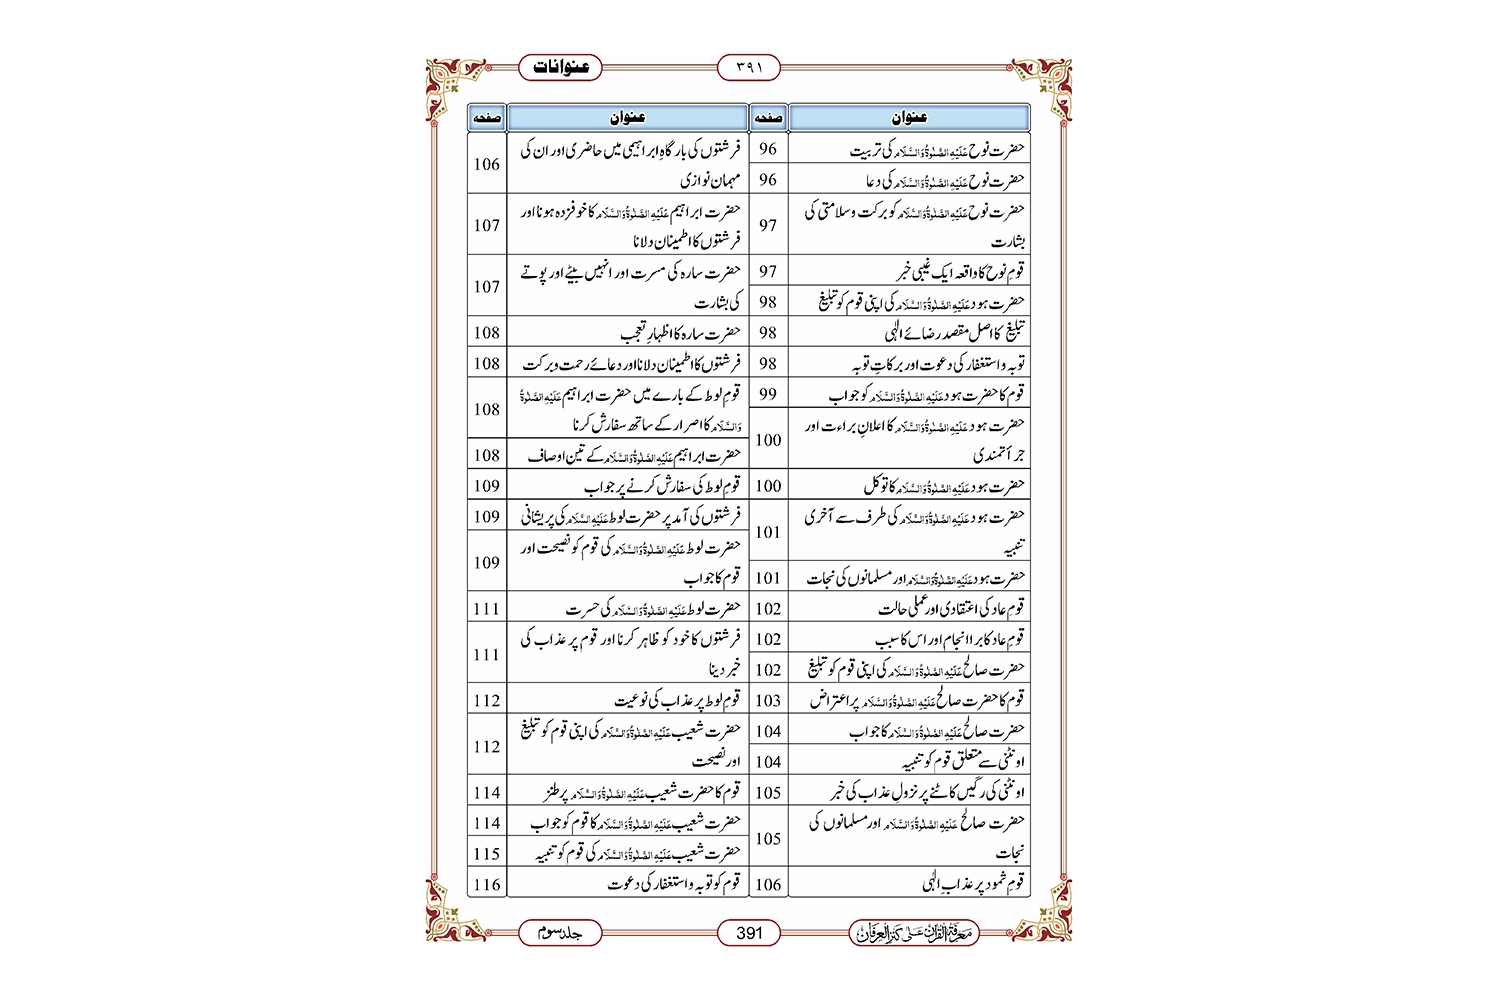 عنوانات
۳۹۱
عنوان
صفحہ
حضرت نوح عَلَيْهِ الصَّلٰوةُ وَالسَّلَام کی تربیت
96
حضرت نوح عَلَيْهِ الصَّلٰوةُ وَالسَّلَام کی دعا
96
حضرت نوح عَلَيْهِ الصَّلٰوةُ وَالسَّلَام کو برکت و سلامتی کی
بشارت
97
قومِ نوح کا واقعہ ایک غیبی خبر
97
حضرت ہود عَلَيْهِ الصَّلٰوةُ وَالسَّلَام کی اپنی قوم کو تبلیغ
98
تبلیغ کا اصل مقصد رضائے الٰہی
98
توبہ و استغفار کی دعوت اور برکاتِ توبہ
98
قوم کا حضرت ہود عَلَيْهِ الصَّلٰوةُ وَالسَّلَام کو جواب
99
حضرت ہود عَلَيْهِ الصَّلٰوةُ وَالسَّلَام کا اعلانِ براءت اور
جرأتمندی
100
حضرت ہود عَلَيْهِ الصَّلٰوةُ وَالسَّلَام کا توکل
100
حضرت ہود عَلَيْهِ الصَّلٰوةُ وَالسَّلَام کی طرف سے آخری
تنبیہ
101
حضرت ہود عَلَيْهِ الصَّلٰوةُ وَالسَّلَام اور مسلمانوں کی نجات
101
قومِ عاد کی اعتقادی اور عملی حالت
102
قومِ عاد کا برا انجام اور اس کا سبب
102
حضرت صالح عَلَيْهِ الصَّلٰوةُ وَالسَّلَام کی اپنی قوم کو تبلیغ
102
قوم کا حضرت صالح عَلَيْهِ الصَّلٰوةُ وَالسَّلَام پر اعتراض
103
حضرت صالح عَلَيْهِ الصَّلٰوةُ وَالسَّلَام کا جواب
104
اونٹنی سے متعلق قوم کو تنبیہ
104
اونٹنی کی رگیں کاٹنے پر نزولِ عذاب کی خبر
105
حضرت صالح عَلَيْهِ الصَّلٰوةُ وَالسَّلَام اور مسلمانوں کی
نجات
105
قومِ ثمود پر عذابِ الٰہی
106
عنوان
صفحہ
فرشتوں کی بارگاہِ ابراہیمی میں حاضری اور ان کی
مہمان نوازی
106
حضرت ابراہیم عَلَيْهِ الصَّلٰوةُ وَالسَّلَام کا خوفزدہ ہونا اور
فرشتوں کا اطمینان دلانا
107
حضرت سارہ کی مسرت اور انہیں بیٹے اور پوتے
کی بشارت
107
حضرت سارہ کا اظہارِ تعجب
108
فرشتوں کا اطمینان دلانا اور دعائے رحمت و برکت
108
قومِ لوط کے بارے میں حضرت ابراہیم عَلَيْهِ الصَّلٰوةُ
وَالسَّلَام کا اصرار کے ساتھ سفارش کرنا
108
حضرت ابراہیم عَلَيْهِ الصَّلٰوةُ وَالسَّلَام کے تین اوصاف
108
قومِ لوط کی سفارش کرنے پر جواب
109
فرشتوں کی آمد پر حضرت لوط عَلَيْهِ السَّلَام کی پریشانی
109
حضرت لوط عَلَيْهِ الصَّلٰوةُ وَالسَّلَام کی قوم کو نصیحت اور
قوم کا جواب
109
حضرت لوط عَلَيْهِ الصَّلٰوةُ وَالسَّلَام کی حسرت
111
فرشتوں کا خود کو ظاہر کرنا اور قوم پر عذاب کی
خبر دینا
111
قومِ لوط پر عذاب کی نوعیت
112
حضرت شعیب عَلَيْهِ الصَّلٰوةُ وَالسَّلَام کی اپنی قوم کو تبلیغ
اور نصیحت
112
قوم کا حضرت شعیب عَلَيْهِ الصَّلٰوةُ وَالسَّلَام پر طنز
114
حضرت شعیب عَلَيْهِ الصَّلٰوةُ وَالسَّلَام کا قوم کو جواب
114
حضرت شعیب عَلَيْهِ الصَّلٰوةُ وَالسَّلَام کی قوم کو تنبیہ
115
قوم کو توبہ و استغفار کی دعوت
116
معرفۃ القرآن علیٰ کنز العرفان
391
جلد سوم